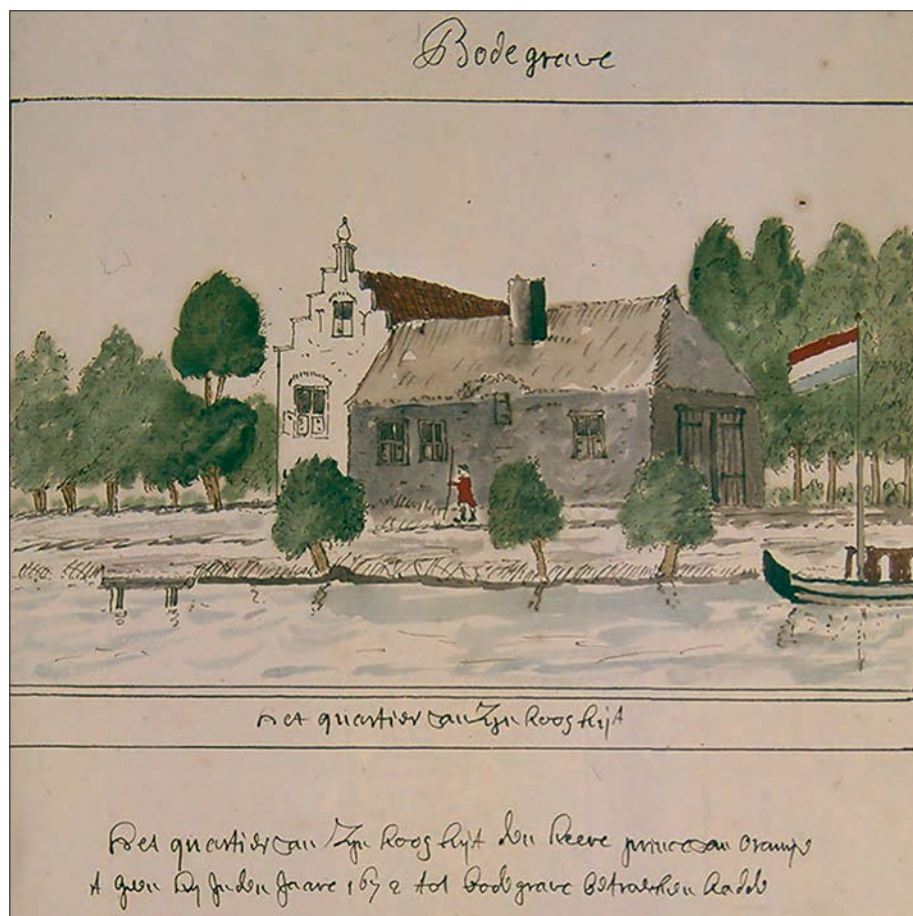 Bodegrave
Het quartier van Zijn hoogheijt
Het quartier van Zijn hoogheijt den heere prince van oranje
t geen hij in den Jaare 1672 tot bodegrave betrocken hadde